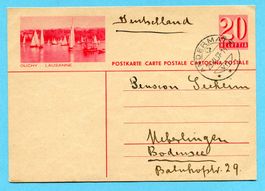 Deutschland
20
HELVETIA
OUCHY - LAUSANNE
POSTKARTE CARTE POSTALE CARTOLINA POSTALE
Pension Seeheim
Ueberlingen
Bodensee
Bahnhofstr. 29.